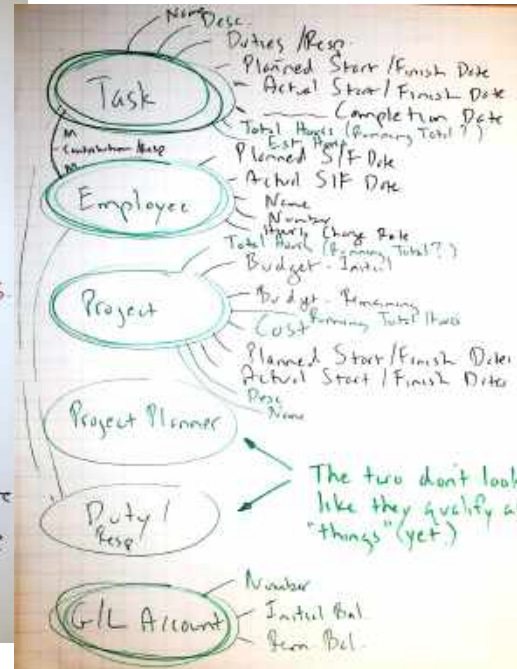 Name
Desc.
Duties /Resp.
Planned Start /Finish Date
Task
Actual Start / Finish Date
Completion Date
Total Hours (Running Total?)
Est.
M
Contribution /Resp
M
Planned S/F Date
Actual S/F Date
Employee
Name
Number
Hourly Charge Rate
Total Hours (Running Total?)
Budget - Initial
Project
Budget - Remaining
Cost
Running Total Hours
Planned Start /Finish Dates
Actual Start / Finish Dates
Desc
Name
Project Planner
The two don't look
like they qualify a
"things" (yet.)
Duty /
Resp
Number
G/L Account
Initial Bal.
Bal.